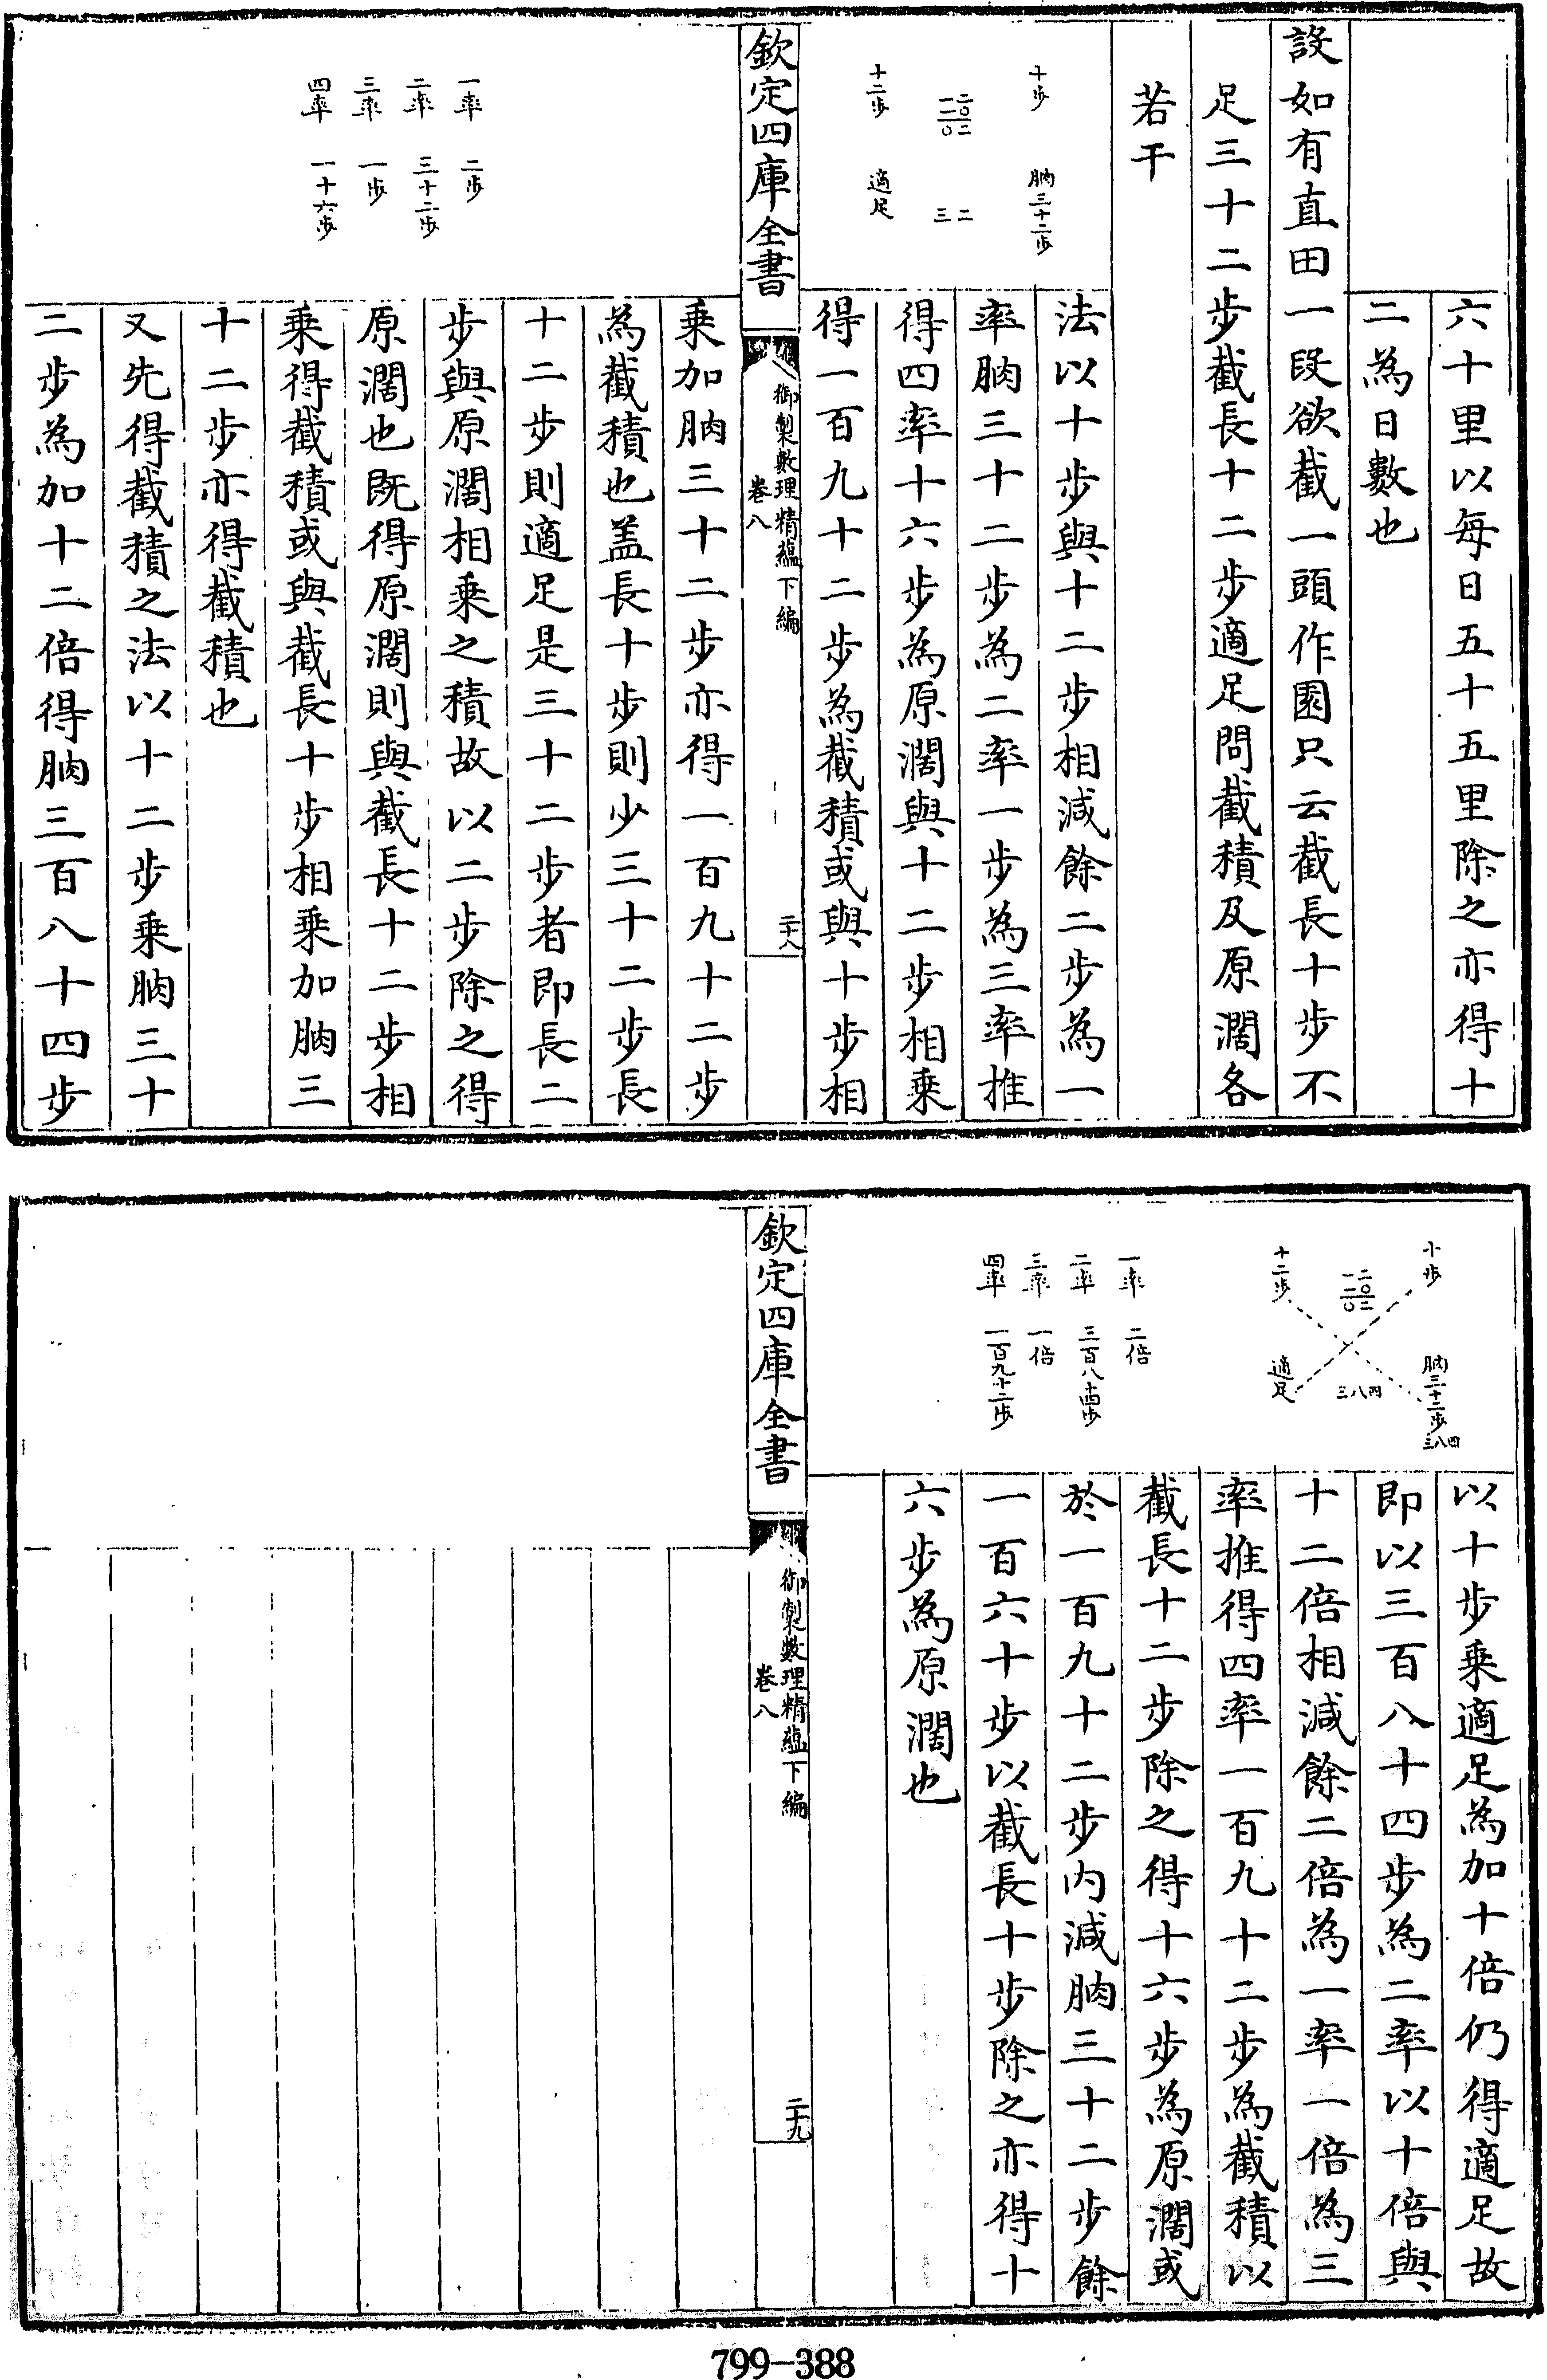 六十里以每日五十五里除之亦得十
二為日數也
設如有直田一段欲截一頭作園只云截長十步不
足三十二步截長十二步適足問截積及原濶各
若干
十步
朒三十二步
二〇二
一二〇
二
三
十二步
適足
法以十步與十二步相減餘二步為一
率朒三十二步為二率一步為三率推
得四率十六步為原濶與十二步相乗
得一百九十二步為截積或與十步相
欽定四庫全書
御製數理精蘊下編
卷八
二十八
一率 二步
二率 三十二步
三率 一步
四率 一十六步
乗加朒三十二步亦得一百九十二步
為截積也盖長十步則少三十二步長
十二步則適足是三十二步者即長二
步與原濶相乗之積故以二步除之得
原濶也既得原濶則與截長十二步相
乗得截積或與截長十步相乗加朒三
十二步亦得截積也
又先得截積之法以十二步乗朒三十
二步為加十二倍得朒三百八十四步
十步
朒三十二步
三八四
二〇二
一二〇
三八四
十二步
適足
一率 二倍
二率 三百八十四步
三率 一倍
四率 一百九十二步
以十步乗適足為加十倍仍得適足故
即以三百八十四步為二率以十倍與
十二倍相減餘二倍為一率一倍為三
率推得四率一百九十二步為截積以
截長十二步除之得十六步為原濶或
於一百九十二步内減朒三十二步餘
一百六十步以截長十步除之亦得十
六步為原濶也
欽定四庫全書
御製數理精蘊下編
卷八
二十九
799-388